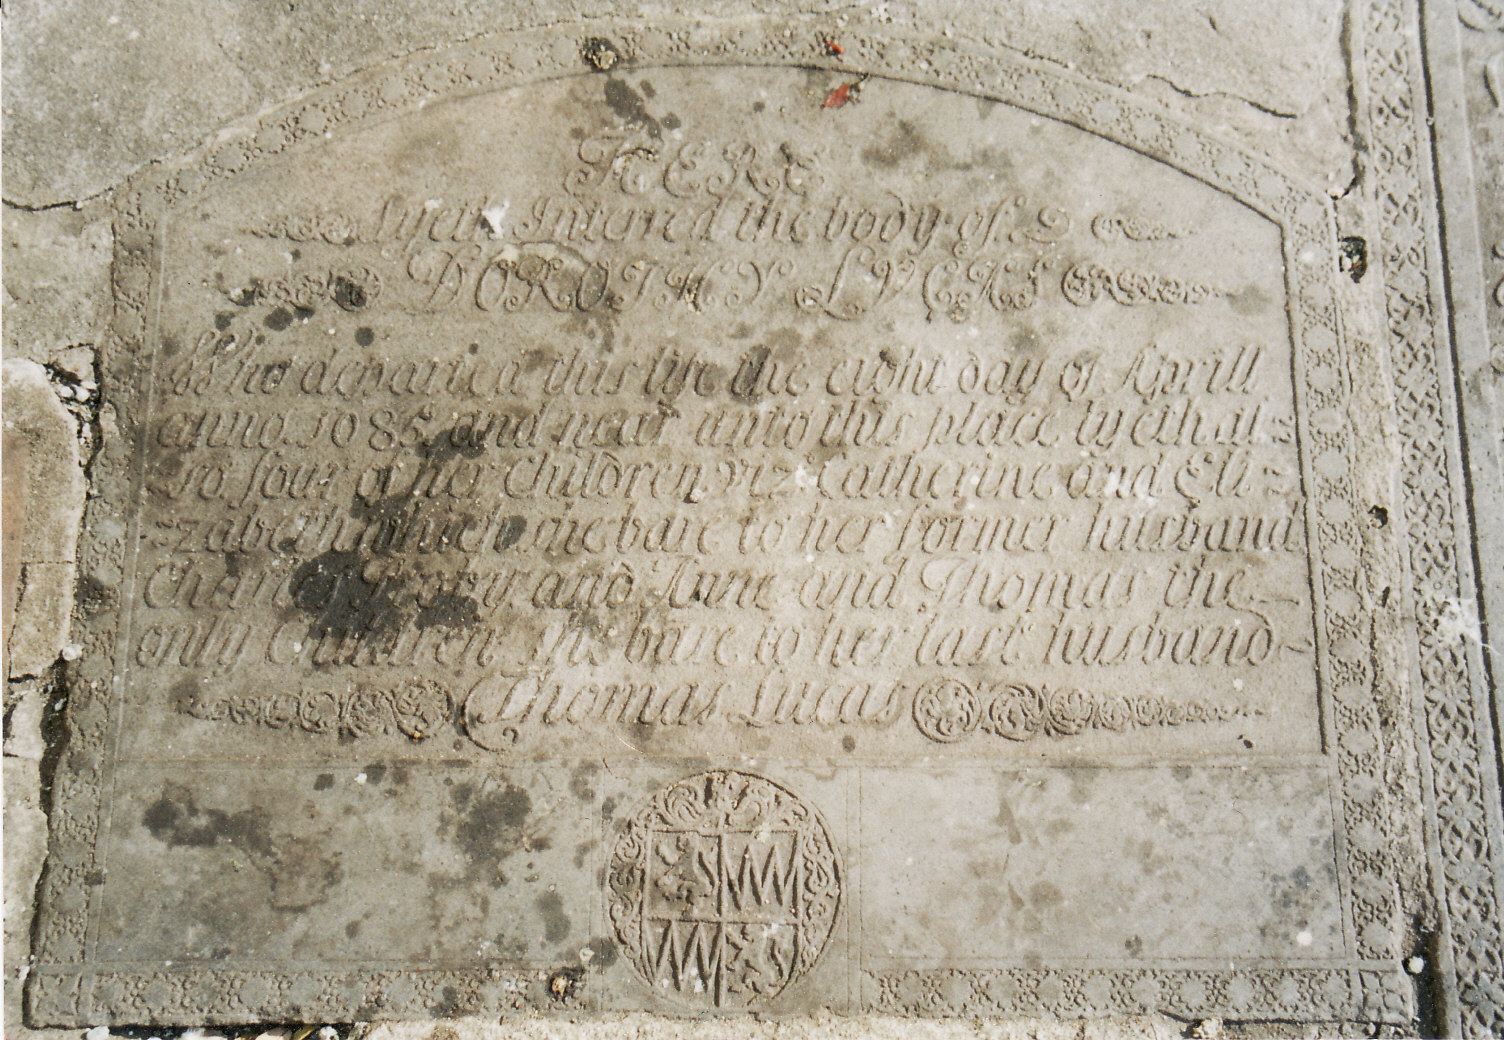 HERE
lyeth Interred the body of
DOROTHY LVCAS
Who departed this life the eight day of Aprill
anno 1685 and near unto this place lyeth al-
so four of her Children viz Catherine and Eli-
-zabeth which she bare to her former husband
Charles and Ann and Thomas the
only Children she bare to her last husband
Thomas Lucas